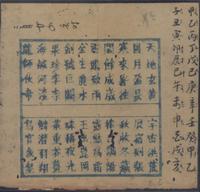 甲乙丙丁戊己庚辛壬癸甲乙
子丑寅卯辰巳午未申酉戌亥
天地玄黃 宇宙洪荒
日月盈昃 辰宿列張
寒來暑往 秋收冬藏
閏餘成歲 律呂調陽
雲騰致雨 露結為霜
金生麗水 玉出崑岡
劍號巨闕 珠稱夜光
果珍李柰 菜重芥薑
海鹹河淡 鱗潛羽翔
龍師火帝 鳥官人皇